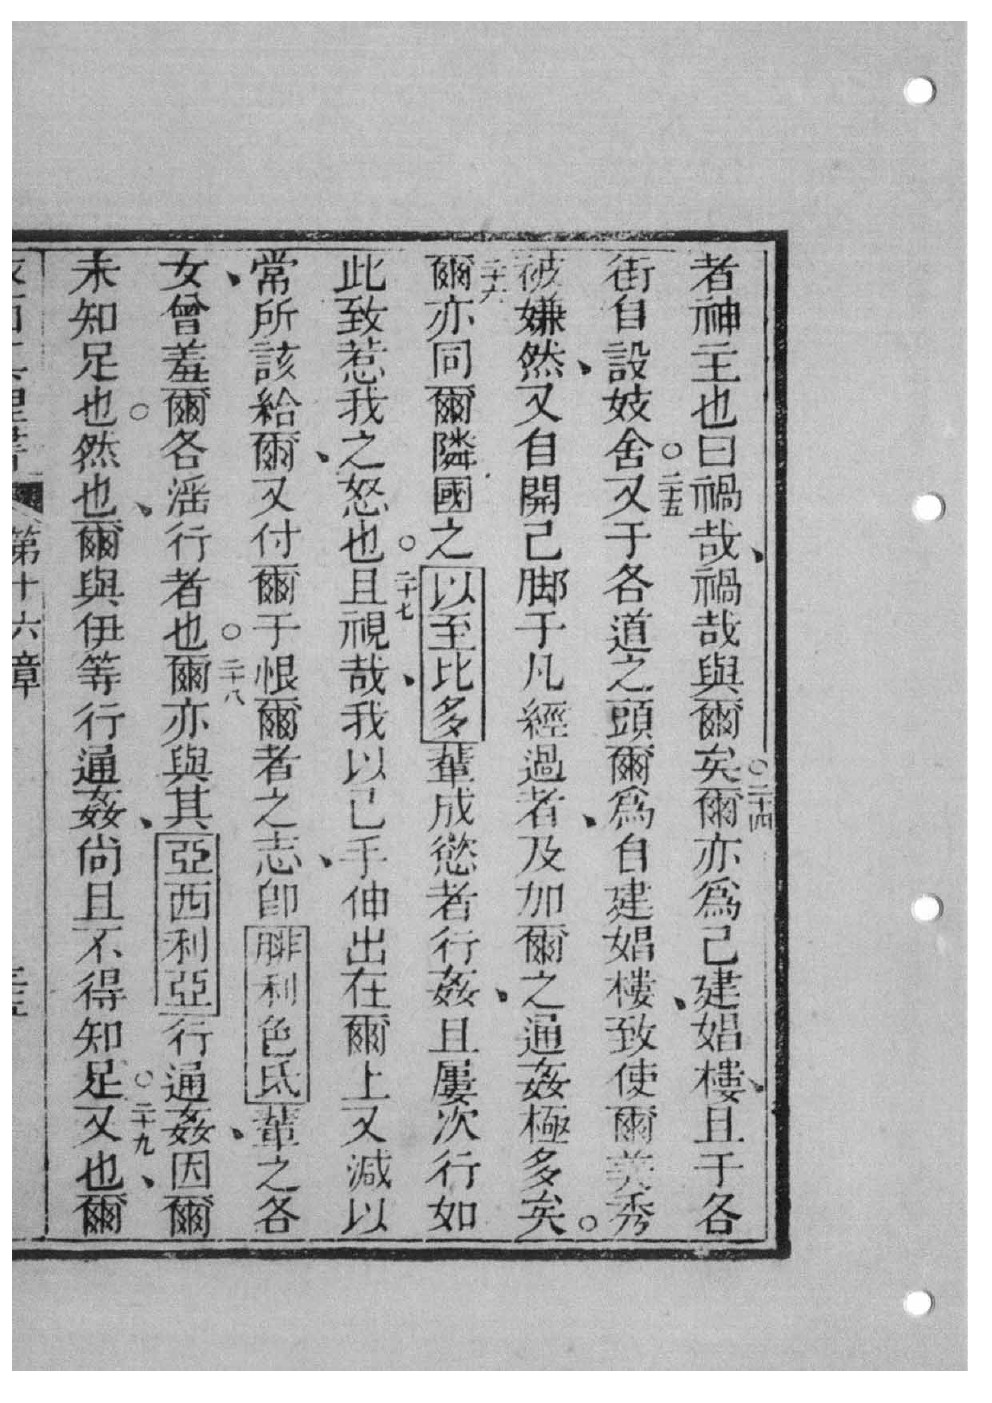 者神主也曰禍哉、禍哉與爾矣。二十四爾亦爲己建娼樓、且于各
街自設妓舍。二十五又于各道之頭爾爲自建娼樓、致使爾美秀
被嫌、然又自開己脚于凡經過者、及加爾之通姦極多矣。
二十六爾亦同爾隣國之以至比多輩成慾者行姦、且屢次行如
此致惹我之怒也。二十七且視哉、我以己手伸出在爾上又減以
常所該給爾、又付爾于恨爾者之志、卽腓利色氐輩之各
女、曾羞爾各滛行者也。二十八爾亦與其亞西利亞行通姦、因爾
未知足也。然也、爾與伊等行通姦、尚且不得知足。二十九又也、爾
第十六章